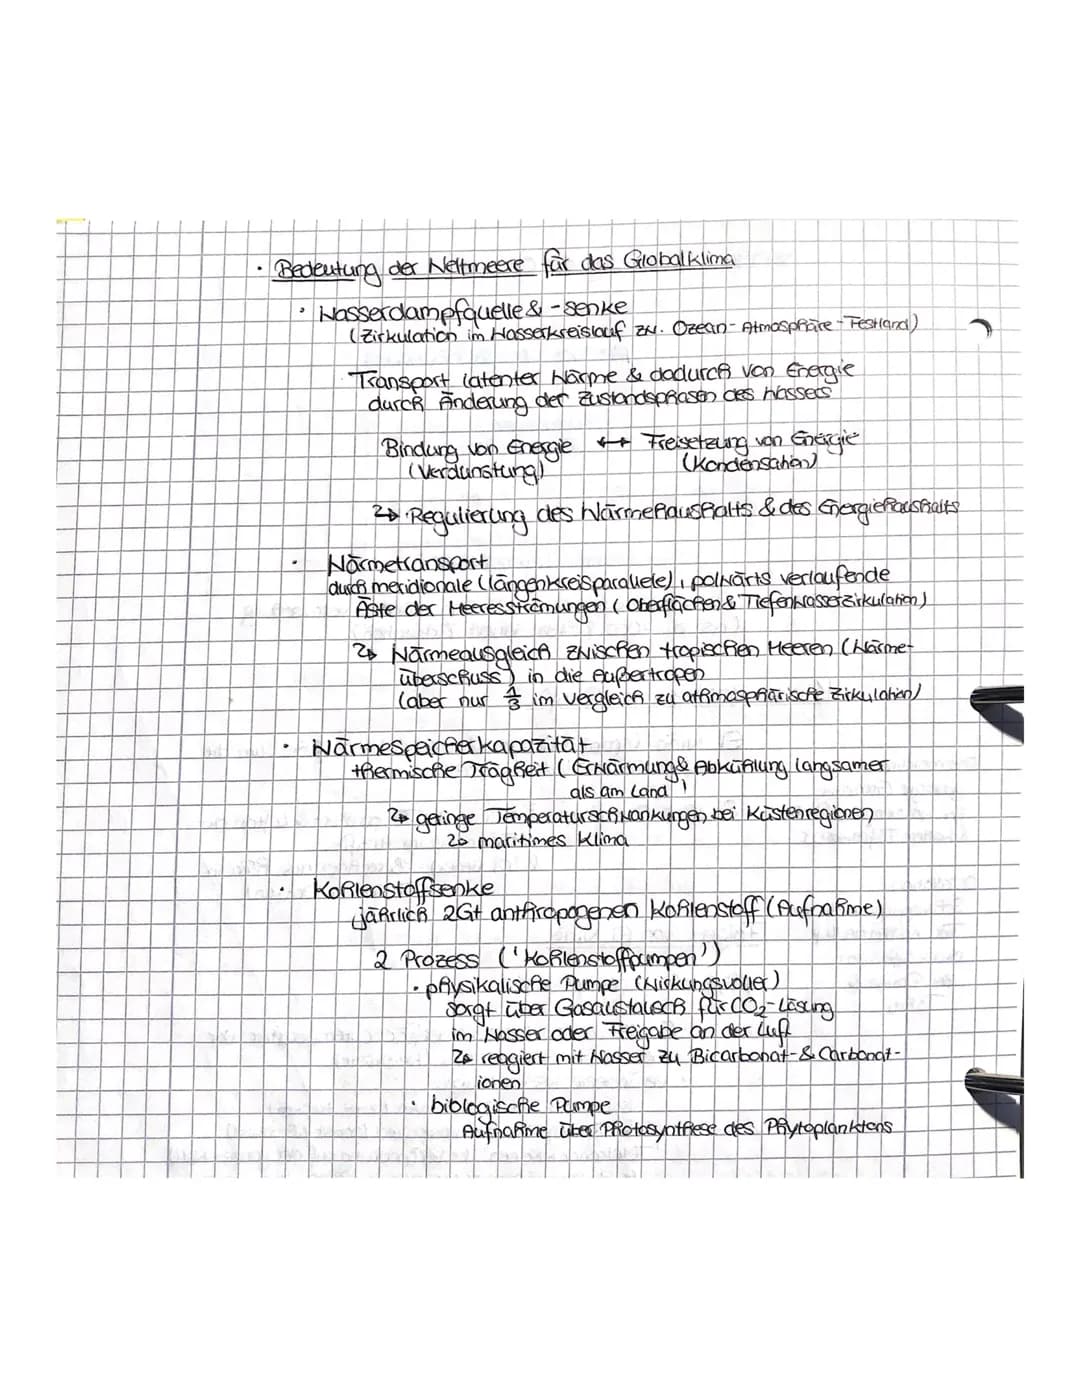 · Bedeutung der Weltmeere für das Globalklima
· Wasserdampfquelle & -senke
(Zirkulation im Wasserkreislauf zw. Ozean-Atmosphäre-Festland)
Transport latenter Wärme & dadurch von Energie
durch Änderung der Zustandsphasen des Wassers
Bindung von Energie ↔ Freisetzung von Energie
(Verdunstung) (Kondensation)
↳ Regulierung des Wärmehaushalts & des Energiehaushalts
· Wärmetransport
durch meridionale (längenkreisparallele), polwärts verlaufende
Äste der Meeresströmungen (Oberflächen & Tiefenwasserzirkulation)
↳ Wärmeausgleich zwischen tropischen Meeren (Wärme-
überschuss) in die Außertropen
(aber nur 1/3 im Vergleich zu athmosphärische Zirkulation)
· Wärmespeicherkapazität
thermische Trägheit (Erwärmung & Abkühlung langsamer
als am Land)
↳ geringe Temperaturschwankungen bei Küstenregionen
↳ maritimes Klima
· Kohlenstoffsenke
jährlich 2Gt anthropogenen Kohlenstoff (Aufnahme)
2 Prozess ('Kohlenstoffpumpen')
· physikalische Pumpe (wirkungsvoller)
sorgt über Gasaustausch für CO₂-Lösung
im Wasser oder Freigabe an der Luft
↳ reagiert mit Wasser zu Bicarbonat- & Carbonat-
ionen
· biologische Pumpe
Aufnahme über Photosynthese des Phytoplanktons